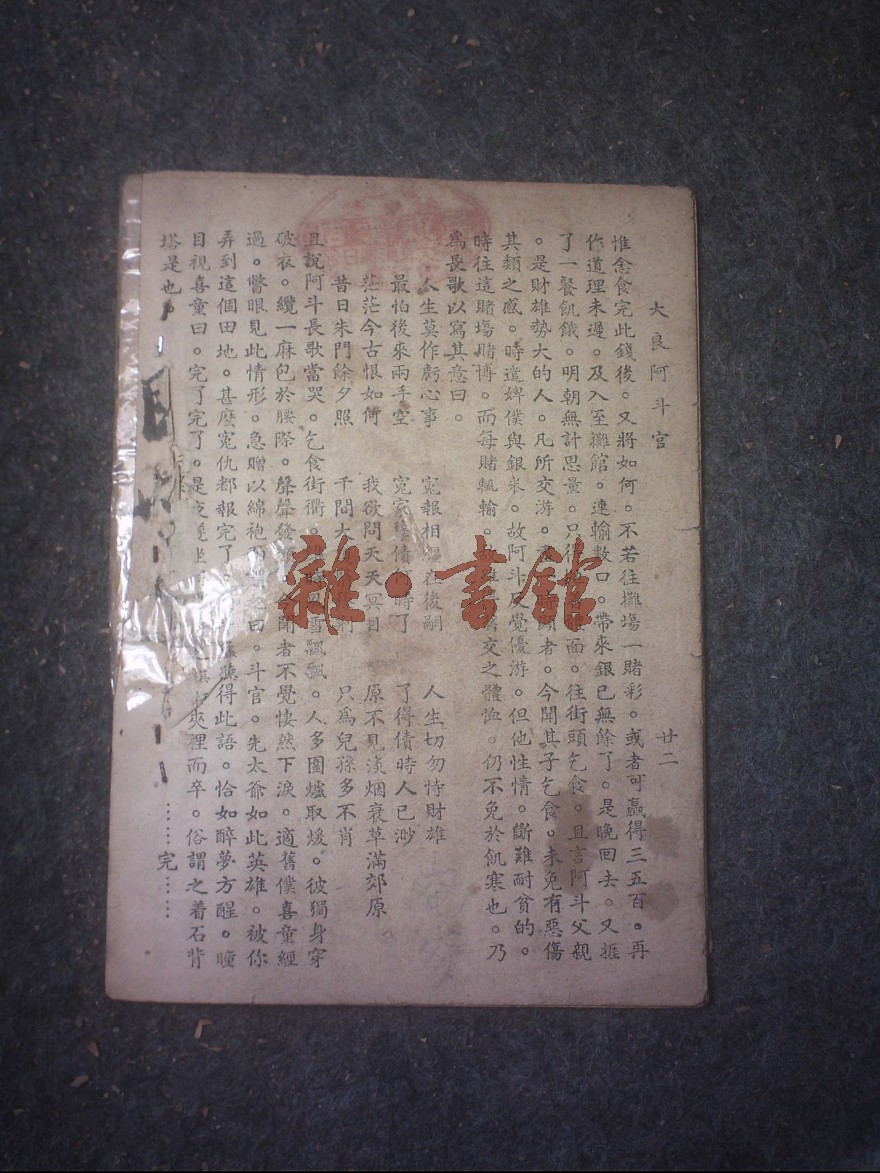 大良阿斗官 廿二
惟念食完此錢後。又將如何。不若往攤塲一賭彩。或者可贏得三五百。再
作道理未遲。及入至攤館。連輸數口。帶來銀已無餘了。是晚回去。又捱
了一餐飢餓。明朝無計思量。只得面。往街頭乞食。且言阿斗父親
。是財雄勢大的人。凡所交游。者。今聞其子乞食。未免有惡傷
其類之感。時遣婢僕與銀米。故阿斗反覺優游。但他性情。斷難耐貧的。
時往這賭塲賭博。而每賭輒輸。交之體恤。仍不免於飢寒也。乃
爲長歌以寫其意曰。
人生莫作虧心事 冤報相在後嗣 人生切勿恃財雄
最怕後來兩手空 冤家債時了 了得債時人已渺
茫茫今古恨如何 我欲問天天冥目 原不見淡烟衰草滿郊原
昔日朱門餘夕照 千間大 只爲兒孫多不肖
且說阿斗長歌當哭。乞食街衢。雪飄飄。人多圍爐取煖。彼獨身穿
破衣。纜一麻包於腰際。聲聲發聞者不覺悽然下淚。適舊僕喜童經
過。瞥眼見此情形。急贈以綿袍而曰。斗官。先太爺如此英雄。被你
弄到這個田地。甚麽冤仇都報完了。聽得此語。恰如醉夢方醒。瞳
目視喜童曰。完了完了。是夜夾裡而卒。俗謂之着石背
塔是也。 ……完……
雜·書館